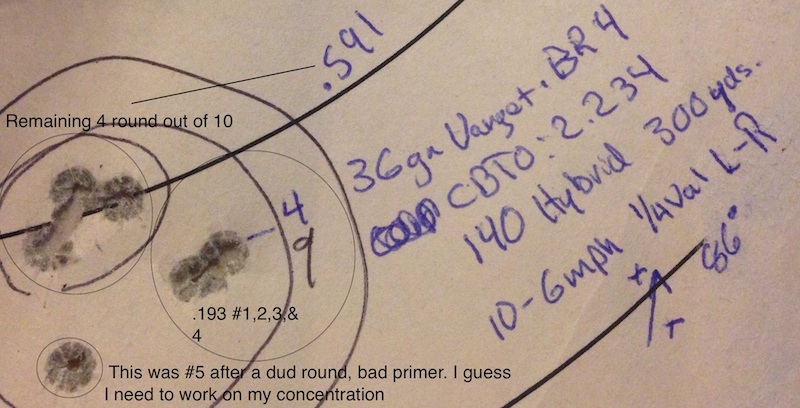 .591
Remaining 4 round out of 10
36gn Varget. BR4
CBTO: 2.234
140 Hybrid 300yds.
10-6mph 1/4val L-R
86°
4
9
.193 #1,2,3,&
4
This was #5 after a dud round, bad primer. I guess
I need to work on my concentration